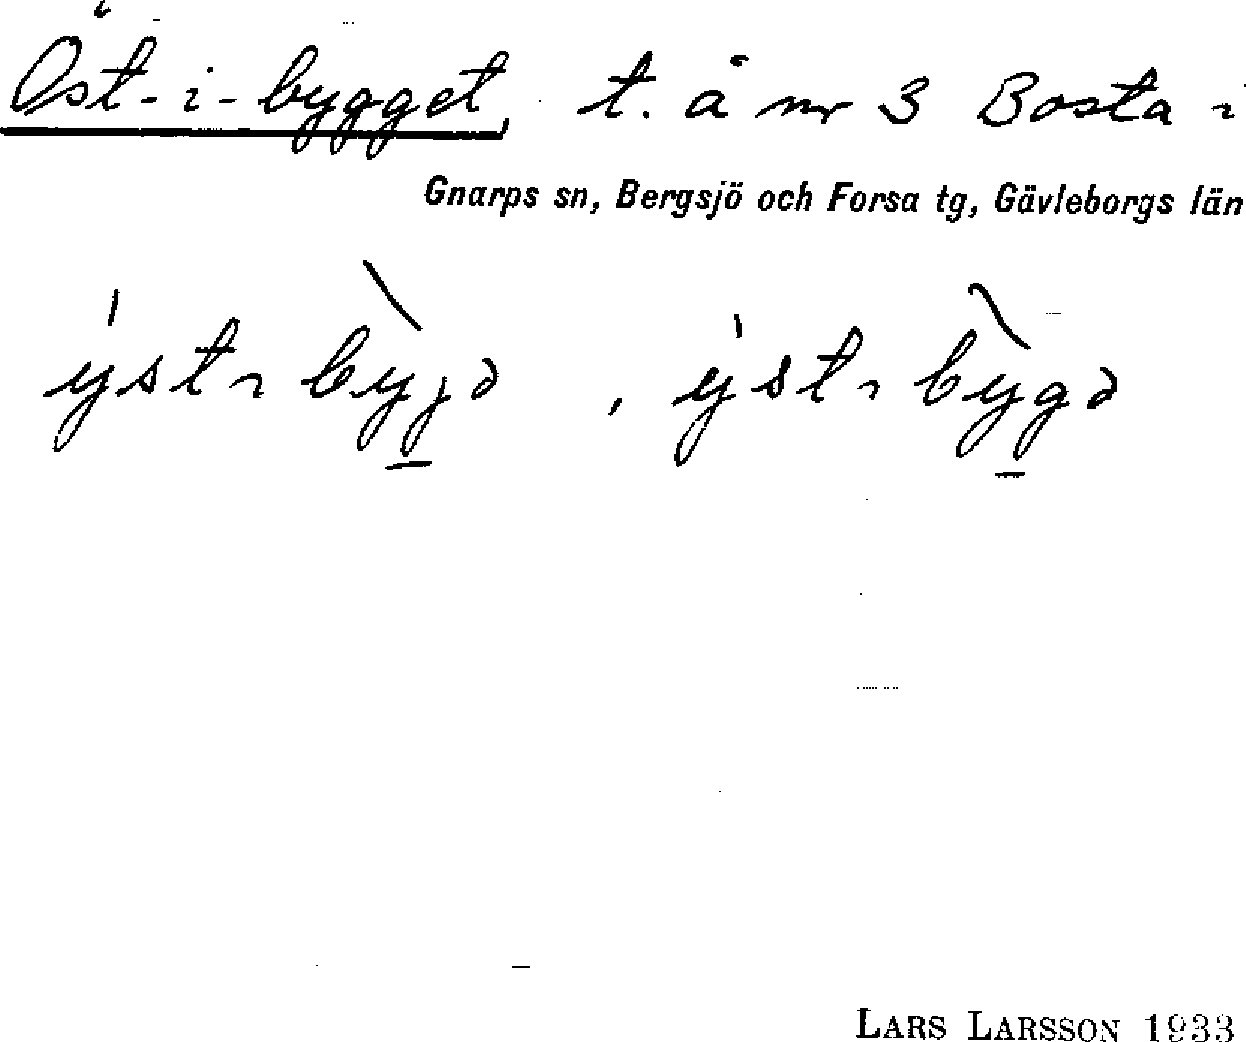 Öst-i-bygget, t. å nr 3 Bosta i
Gnarps sn, Bergsjö och Forsa tg, Gävleborgs län
ýstı bỳgə , ýstı bỳgə
LARS LARSSON 1933